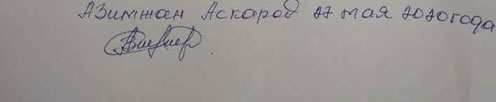 Азимжан Аскаров 27 мая 2020 года